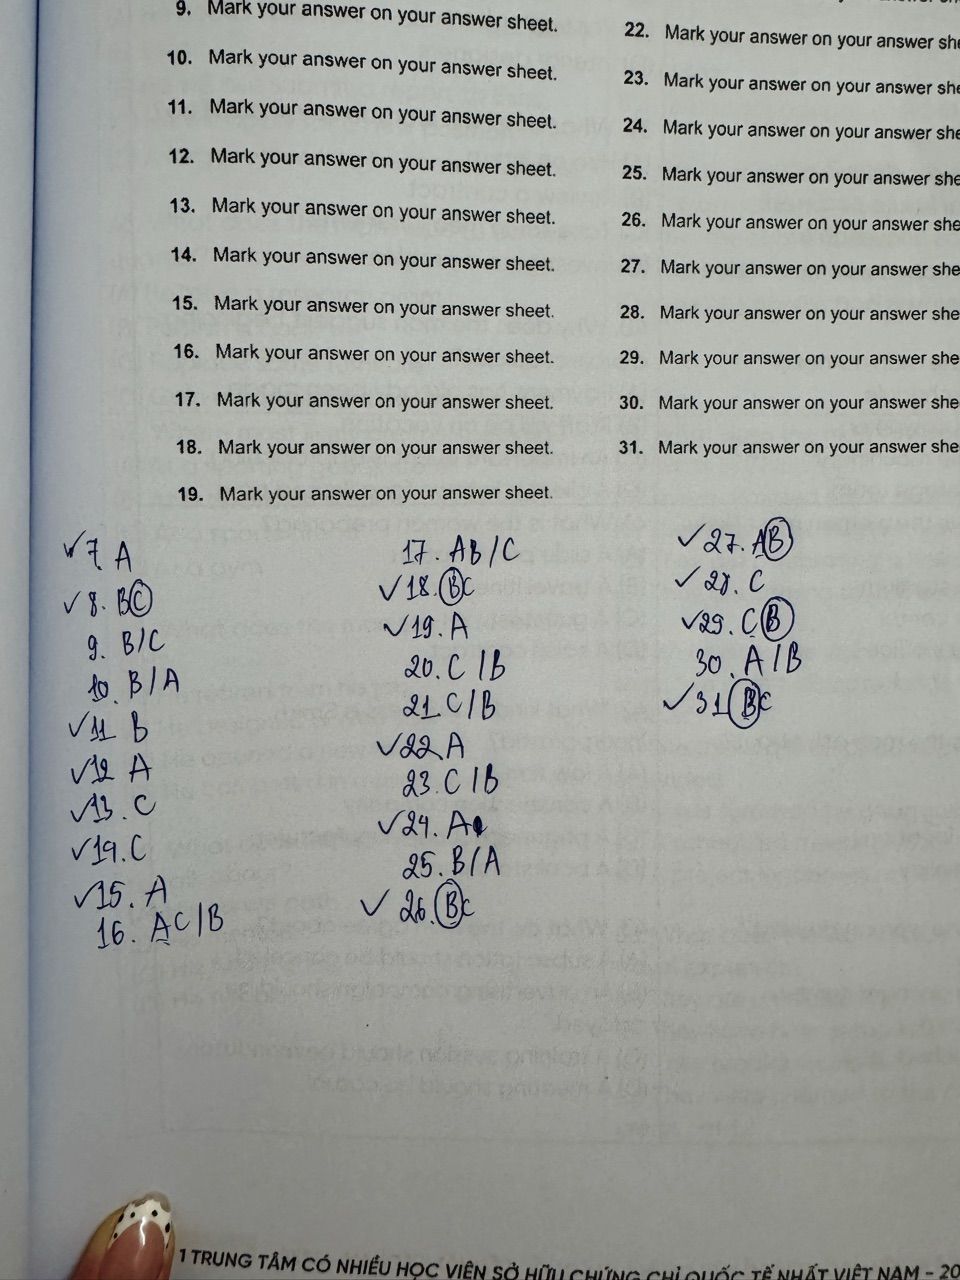 9. Mark your answer on your answer sheet.
10. Mark your answer on your answer sheet.
11. Mark your answer on your answer sheet.
12. Mark your answer on your answer sheet.
13. Mark your answer on your answer sheet.
14. Mark your answer on your answer sheet.
15. Mark your answer on your answer sheet.
16. Mark your answer on your answer sheet.
17. Mark your answer on your answer sheet.
18. Mark your answer on your answer sheet.
19. Mark your answer on your answer sheet.
22. Mark your answer on your answer she
23. Mark your answer on your answer she
24. Mark your answer on your answer she
25. Mark your answer on your answer she
26. Mark your answer on your answer she
27. Mark your answer on your answer she
28. Mark your answer on your answer she
29. Mark your answer on your answer she
30. Mark your answer on your answer she
31. Mark your answer on your answer she
✓7 A
✓8. BC
9. B/C
10. B/A
✓11 B
✓12 A
✓13. C
✓14. C
✓15. A
16. AC/B
17. AB/C
✓18. BC
✓19. A
20. C/B
21 C/B
✓22 A
23. C/B
✓24. A
25. B/A
✓26. BC
✓27. AB
✓28. C
✓29. CB
30. A/B
✓31 BC
1 TRUNG TÂM CÓ NHIỀU HỌC VIÊN SỞ HỮU CHỨNG CHỈ QUỐC TẾ NHẤT VIỆT NAM - 20